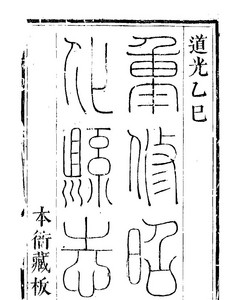 道光乙巳
重修昭
化縣志
本衙藏板